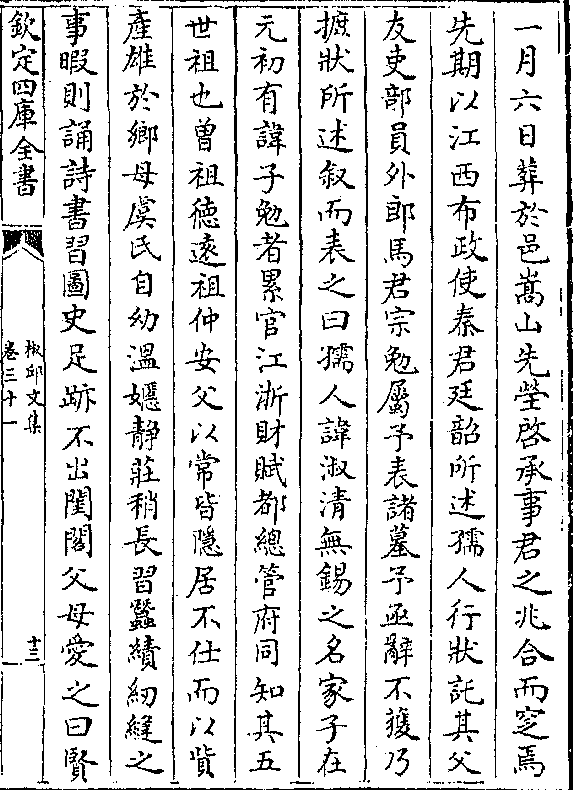 一月六日葬於邑嵩山先塋啓承事君之兆合而窆焉
先期以江西布政使秦君廷韶所述孺人行狀託其父
友吏部員外郎馬君宗勉屬予表諸墓予亟辭不獲乃
摭狀所述叙而表之曰孺人諱淑清無錫之名家子在
元初有諱子勉者累官江浙財賦都總管府同知其五
世祖也曾祖徳逺祖仲安父以常皆隠居不仕而以貲
產雄於鄉母虞氏自幼溫嬺静莊稍長習蠶績紉縫之
事暇則誦詩書習圖史足跡不出閨閤父母愛之曰賢
欽定四庫全書
椒邱文集
卷三十一
十三